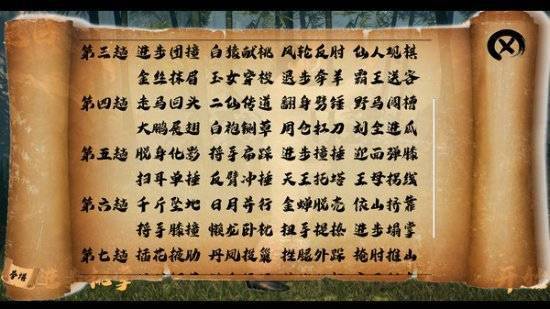 第三趟 进步团撞 白猿献桃 风轮反肘 仙人观棋
金丝抹眉 玉女穿梭 退步牵羊 霸王送客
第四趟 走马回头 二仙传道 翻身劈锤 野马闯槽
大鹏展翅 白袍铡草 周仓扛刀 刘全进瓜
第五趟 脱身化影 捋手扁踩 进步撞捶 迎面弹膝
扫耳单捶 反臂冲捶 天王托塔 王母拐线
第六趟 千斤坠地 日月并行 金蝉脱壳 依山挤靠
捋手膝撞 懒龙卧枕 扭手提热 进步塌掌
第七趟 插花掖肋 丹凤捉巢 挫腮外踩 掩肘推山